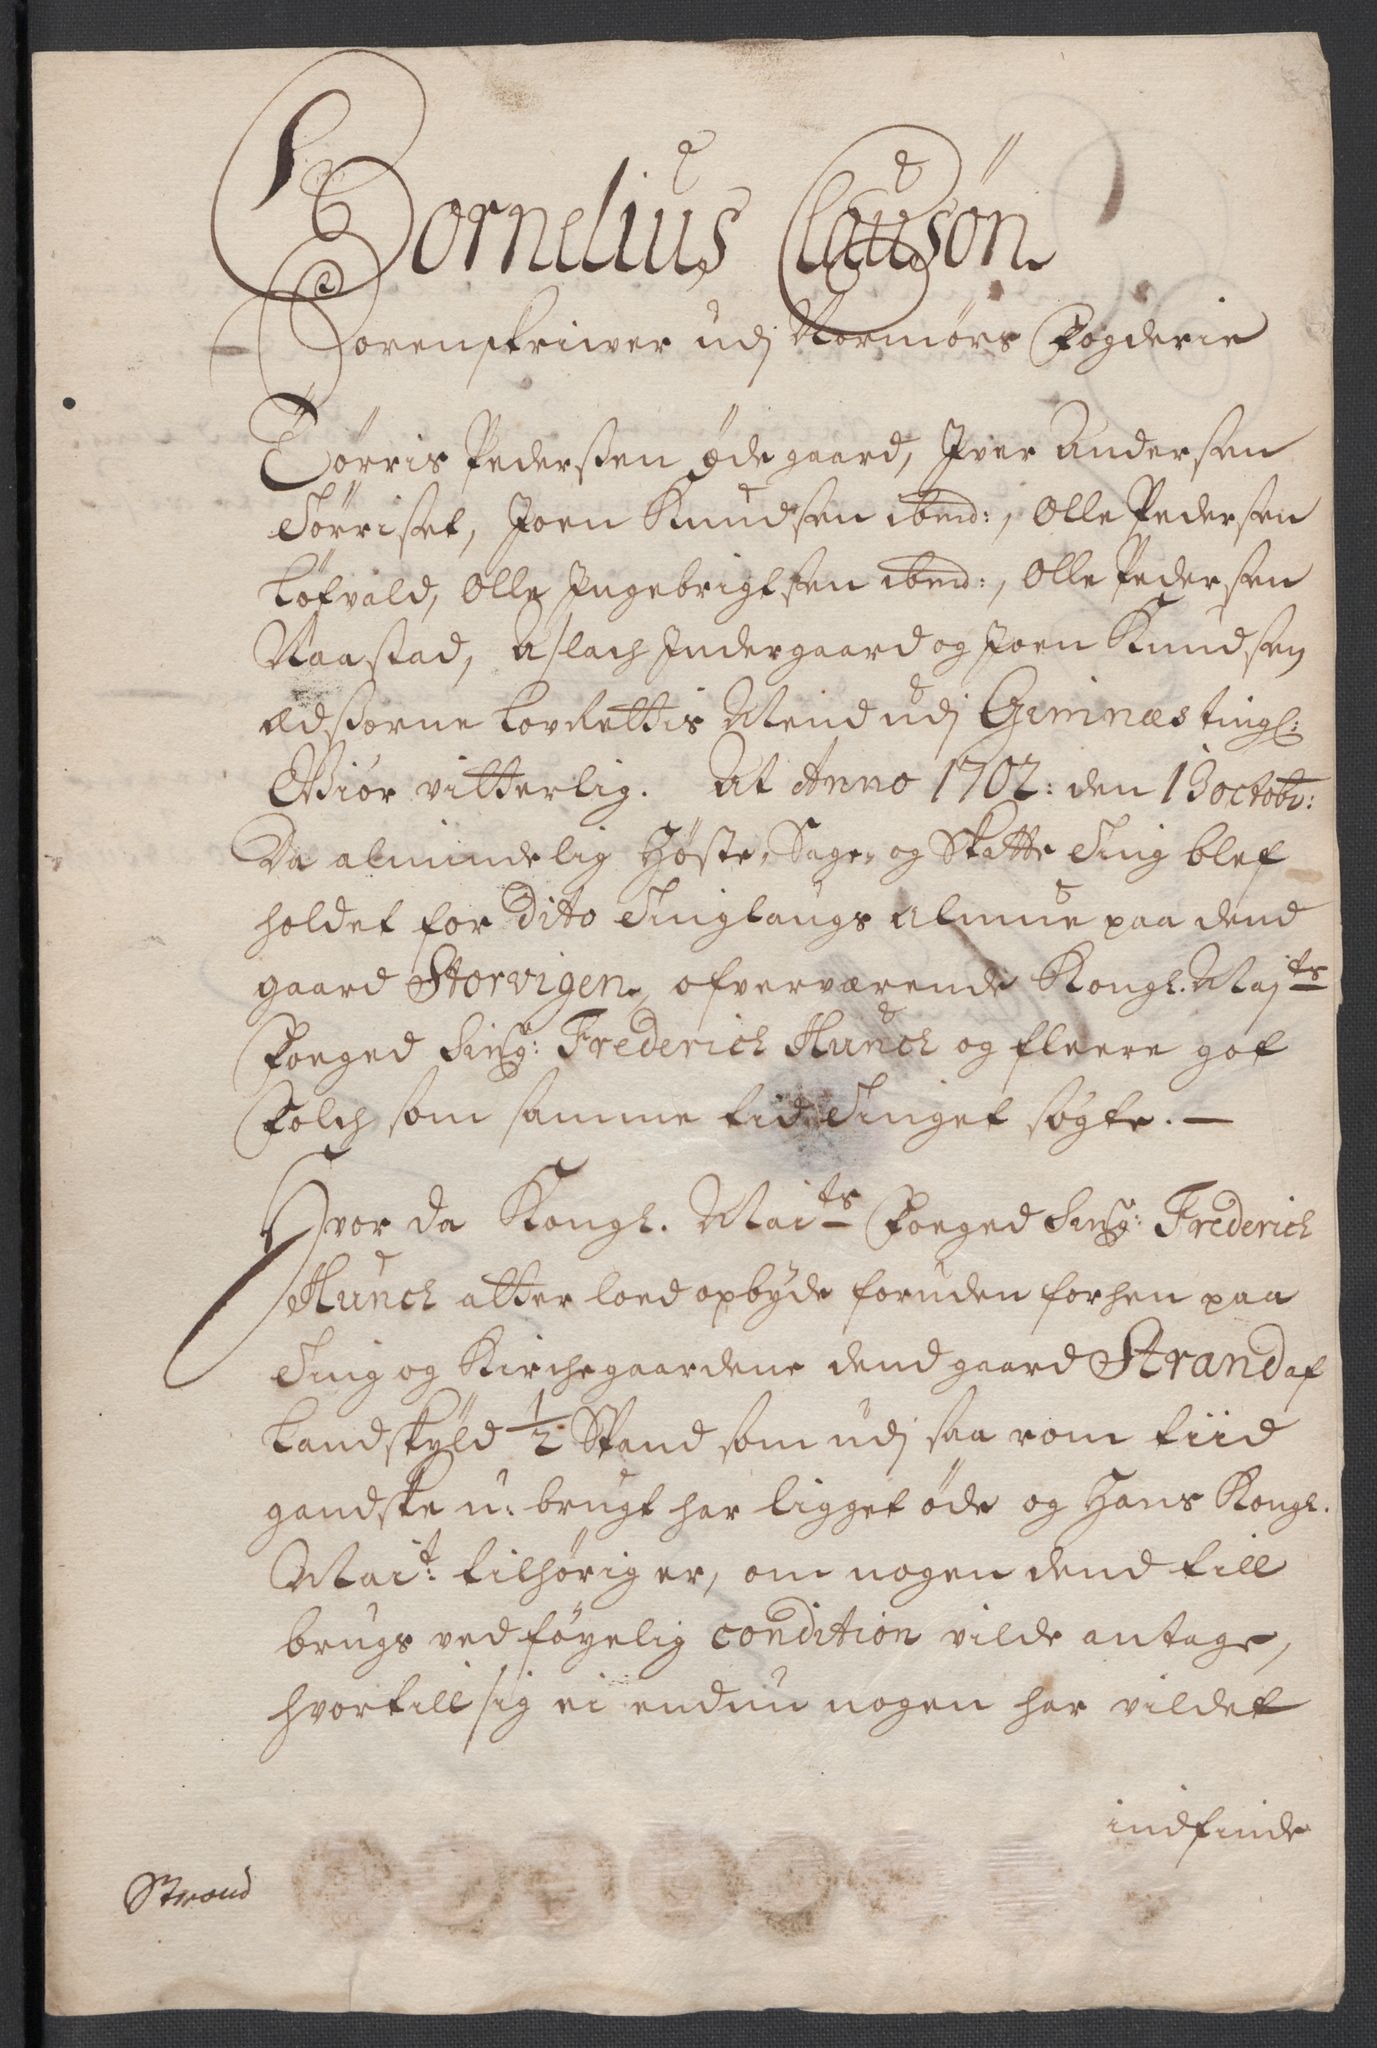 Cornelius Clausøn
Sorenskriwer udj Normørs Fogderie
Tørris Pedersen Ødegaard, Iver Andersen
Tørriset, Joen Knudsen ibmd:, Olle Pedersen
Løfvald, Olle Ingebrigtsen ibmd:, Olle Pedersen
Naastad, Aslach Indergaard og Joen Knudsen
Edsorne LovRettis Mend udj Gimnæs tingl:
Giør vitterlig. At Anno 1702: den 13 octobr:
Da almindelig Høste, Sage, og Skatte Ting blef
holdet for Dito Tinglaugs almue paa dend
gaard Storvigen, ofverværende Kongl. Majts
Foeged Sing: Frederich Munch og fleere got
Folch som samme tid Tinget søgte. —
Hvor da Kongl. Maits Foeged Sing: Frederich
Munch atter loed opbyde foruden forhen paa
Ting og Kirchegaardene dend gaard Strand af
Landskyld 1/2 Spand som udj saa rom tiid
gandske u: brugt har ligget øde og Hans Kongl.
Mait: tilhørig er, om nogen dend till
brugs ved føyelig condition vilde antage,
hvortill sig ei endnu nogen har vildet
indfinde
Strand